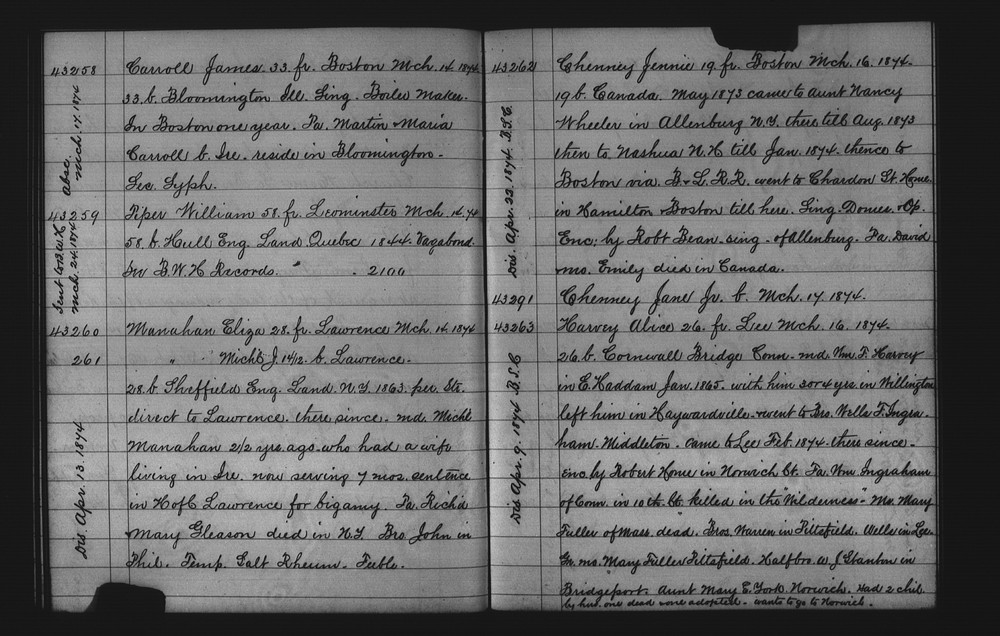 43258 Carroll James. 33. fr. Boston Mch. 14. 1874.
33. b. Bloomington Ill. Sing. Boiler Maker.
In Boston one year. Pa. Martin & Maria
Carroll b. Ire. reside in Bloomington.
Sec. Syph.
Absc. Mch. 17. 1874
43259 Piper William 58. fr. Leominster Mch. 14. 74
58. b. Hull Eng. Land Quebec 1844. Vagabond.
In B.W.H Records. " . 2100
Sent to B.W.H Mch. 24. 1874
43260 Manahan Eliza 28. fr. Lawrence Mch. 14. 1874
261 " Michl. J. 14/12. b. Lawrence.
28. b. Sheffield Eng. Land. N.Y. 1863. per Str.
direct to Lawrence. there since. md. Michl
Manahan 2 1/2 yrs. ago. who had a wife
living in Ire. now serving 7 mos. sentence
in H of C Lawrence for bigamy. Pa. Richd
& Mary Gleason died in N.Y. Bro. John in
Phil. Temp. Salt Rheum. Feeble.
Dis. Apr. 13. 1874
43262 Chenney Jennie 19. fr. Boston Mch. 16. 1874.
19 b. Canada. May 1873 came to Aunt Nancy
Wheeler in Allenburg N.Y. there till Aug. 1873
then to Nashua N.H till Jan. 1874. thence to
Boston via. B. & L. R.R. went to Chardon St. Home.
in Hamilton & Boston till here. Sing. Domes. & Op.
Enc: by Robt Bean. sing. of Allenburg. Pa. David
mo. Emily died in Canada.
Dis. Apr. 22. 1874. B.S.C.
43291 Chenney Jane Jr. b. Mch. 17. 1874.
43263 Harvey Alice 26. fr. Lee Mch. 16. 1874.
26. b. Cornwall Bridge Conn. md. Wm. F. Harvey
in E. Haddam Jan. 1865. with him 3 or 4 yrs. in Willington
left him in Haywardville. & went to Bro. Wells F. Ingra-
ham. Middleton. came to Lee Feb. 1874. there since.
Enc. by Robert Hone in Norwich Ct. Pa. Wm. Ingraham
of Conn. in 10th. Ct. killed in the "Wilderness". Mo. Mary
Fuller of Mass. dead. Bros. Warren in Pittsfield. Wells in Lee.
Gr. mo. Mary Fuller Pittsfield. Half bro. W. J. Stanton in
Bridgeport. Aunt Mary E. York. Norwich. Had 2 chil.
by hus. one dead & one adopted. wants to go to Norwich.
Dis. Apr. 9. 1874. B.S.C